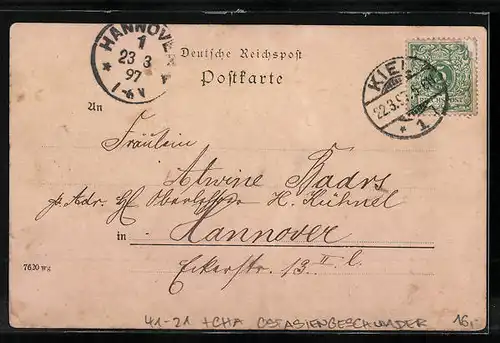 HANNOVER
1
23 3
97
Deutsche Reichspost
Postkarte
KIEL
22.3.97
* 1
An
Fräulein
Alwine Badrs
H. Kühnel
in Hannover
Eckerstr. 13 II l.
7620 wg
41-21 +CHA OSTASIENGESCHWADER 16,-